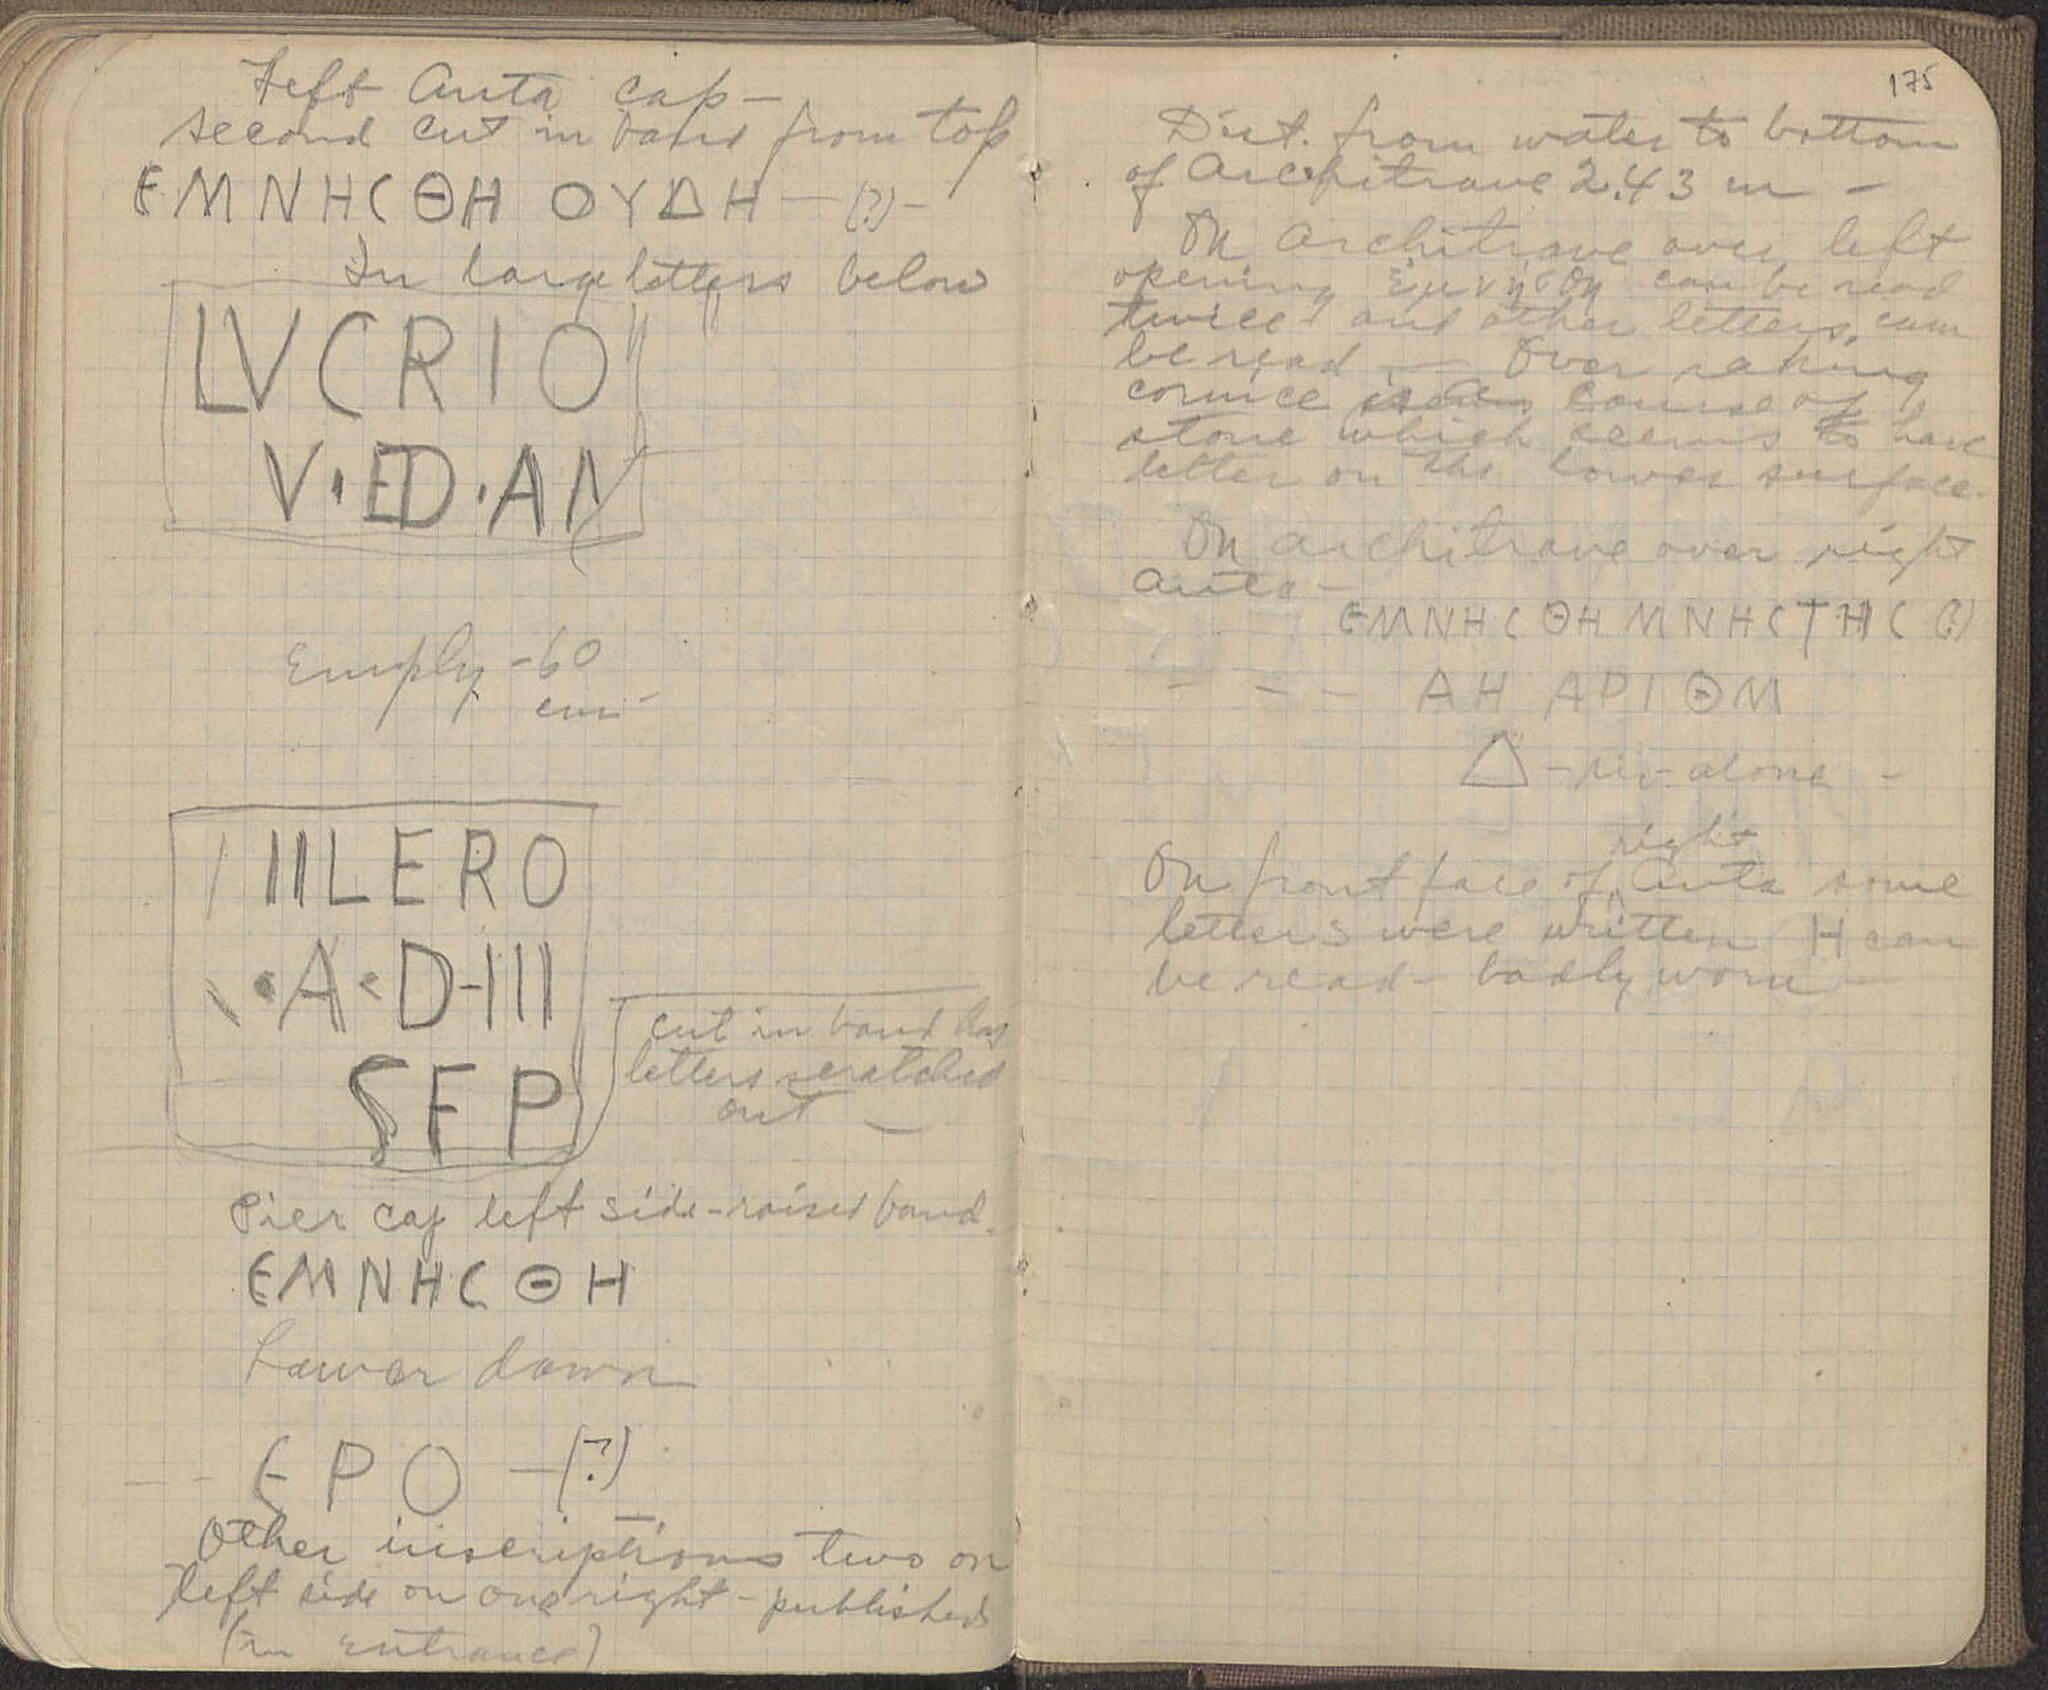 Left Anta cap –
second cut in band from top
ЄMNHCΘH OYΔH — (?) –
In large letters below
LVCRIO
V·ED·AN
Empty – 60
cm –
IIILERO
·A·D-III
SFP
cut in band has
letters scratched
out —
Pier cap left side – raised band.
ЄMNHCΘH
Lower down
- - ЄPO — (?)
Other inscriptions two on
left side on one right – published
(In entrance)
175
Dist. from water to bottom
of Architrave 2.43 m –
On Architrave over left
opening ἐμνήσθη can be read
twice and other letters can
be read. — Over raking
cornice is a course of
stone which seems to have
letter on the lower surface.
On architrave over right
anta –
ЄMNHCΘH MNHCTHC (?)
- - - AH APIΘM
Δ – alone –
On front face of right Anta some
letters were written H can
be read – badly worn –